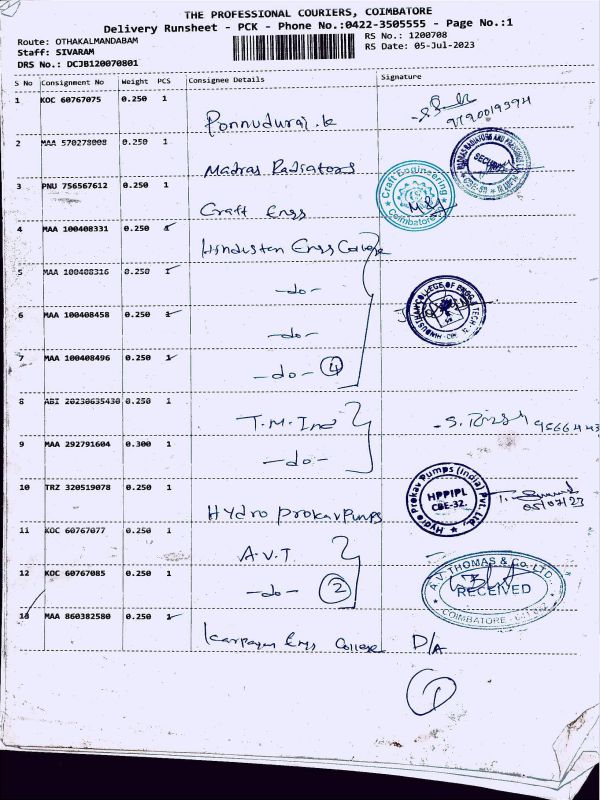 THE PROFESSIONAL COURIERS, COIMBATORE
Delivery Runsheet - PCK - Phone No.:0422-3505555 - Page No.:1
Route: OTHAKALMANDABAM
RS No.: 1200708
Staff: SIVARAM
RS Date: 05-Jul-2023
DRS No.: DCJB120070801
S No Consignment No Weight PCS Consignee Details Signature
1 KOC 60767075 0.250 1
Ponnudurai.k
2 MAA 570278008 0.250 1
Madras Radiators
SECURITY
3 PNU 756567612 0.250 1
Craft Engg
Craft Engineering Coimbatore
4 MAA 100408331 0.250 1
Hindustan Engg College
5 MAA 100408316 0.250 1
-do-
6 MAA 100408458 0.250 1
-do-
7 MAA 100408496 0.250 1
-do- 4
8 ABI 20230635430 0.250 1
T.M. Ind
9 MAA 292791604 0.300 1
-do-
10 TRZ 320519078 0.250 1
Hydro Prokav Pumps
Hydro Prokav Pumps (India) Pvt. Ltd.,
HPPIPL
CBE-32.
05/07/23
11 KOC 60767077 0.250 1
A.V.T
12 KOC 60767085 0.250 1
-do- 2
A.V. THOMAS & Co. LTD.
RECEIVED
13 MAA 860382580 0.250 1
Karpagam Engg College D/A
1